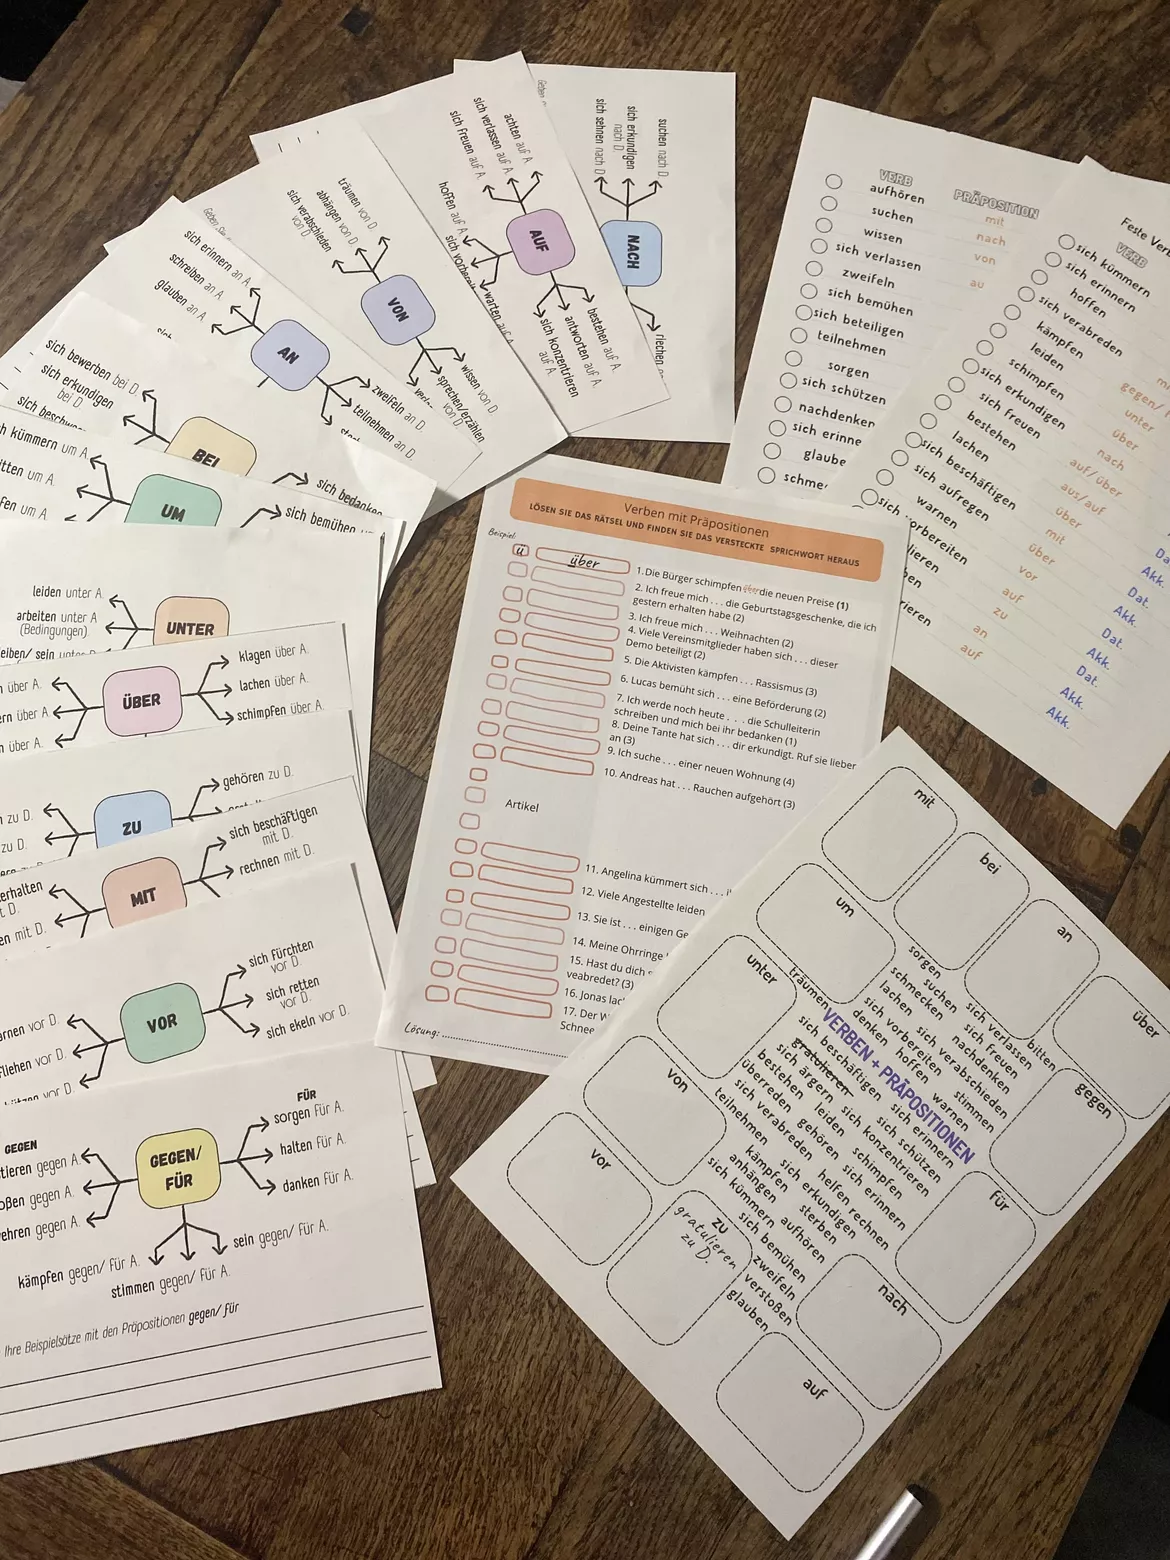 suchen nach D.
sich erkundigen
nach D.
sich sehnen nach D.
NACH
riechen
achten auf A.
sich verlassen auf A.
sich freuen auf A.
hoffen auf A.
warten auf A.
AUF
bestehen auf A.
antworten auf A.
sich konzentrieren
auf A.
träumen von D.
abhängen von D.
sich verabschieden
von D.
VON
wissen von D.
sprechen/erzählen
von D.
sich erinnern an A.
schreiben an A.
glauben an A.
AN
zweifeln an D.
teilnehmen an D.
sich bewerben bei D.
sich erkundigen
bei D.
BEI
sich bedanken
kümmern um A.
um A.
um A.
UM
sich bemühen
leiden unter A.
arbeiten unter A.
(Bedingungen)
sein unter
UNTER
über A.
über A.
über A.
ÜBER
klagen über A.
lachen über A.
schimpfen über A.
zu D.
zu D.
ZU
gehören zu D.
mit D.
MIT
sich beschäftigen
mit D.
rechnen mit D.
vor D.
fliehen vor D.
vor D.
VOR
sich fürchten
vor D.
sich retten
vor D.
sich ekeln vor D.
GEGEN
gegen A.
gegen A.
gegen A.
GEGEN/
FÜR
FÜR
sorgen für A.
halten für A.
danken für A.
kämpfen gegen/ für A.
stimmen gegen/ für A.
sein gegen/ für A.
Ihre Beispielsätze mit den Präpositionen gegen/ für
Verben mit Präpositionen
LÖSEN SIE DAS RÄTSEL UND FINDEN SIE DAS VERSTECKTE SPRICHWORT HERAUS
Beispiel:
ü über
1. Die Bürger schimpfen über die neuen Preise (1)
2. Ich freue mich . . . die Geburtstagsgeschenke, die ich
gestern erhalten habe (2)
3. Ich freue mich . . . Weihnachten (2)
4. Viele Vereinsmitglieder haben sich . . . dieser
Demo beteiligt (2)
5. Die Aktivisten kämpfen . . . Rassismus (3)
6. Lucas bemüht sich . . . eine Beförderung (2)
7. Ich werde noch heute . . . die Schulleiterin
schreiben und mich bei ihr bedanken (1)
8. Deine Tante hat sich . . . dir erkundigt. Ruf sie lieber
an (3)
9. Ich suche . . . einer neuen Wohnung (4)
10. Andreas hat . . . Rauchen aufgehört (3)
Artikel
11. Angelina kümmert sich . . .
12. Viele Angestellte leiden
13. Sie ist . . . einigen
14. Meine Ohrringe
15. Hast du dich
veabredet? (3)
16. Jonas
17. Der
Schnee
Lösung:
VERB
PRÄPOSITION
aufhören
mit
suchen
nach
wissen
von
sich verlassen
au
zweifeln
sich bemühen
sich beteiligen
teilnehmen
sorgen
sich schützen
nachdenken
sich erinne
glaube
schme
VERB
sich kümmern
sich erinnern
hoffen
sich verabreden
kämpfen
leiden
schimpfen
sich erkundigen
sich freuen
bestehen
lachen
sich beschäftigen
sich aufregen
warnen
vorbereiten
gegen/
unter
über
nach
auf/über
aus/auf
über
mit
über
vor
auf
zu
an
auf
Akk.
Dat.
Akk.
Dat.
Akk.
Dat.
Akk.
Akk.
mit
bei
an
über
um
unter
von
vor
zu
gratulieren
zu D.
gegen
für
nach
auf
VERBEN + PRÄPOSITIONEN
sorgen
suchen
sich verlassen
bitten
schmecken
sich freuen
lachen
nachdenken
sich vorbereiten
sich verabschieden
träumen
denken
hoffen
stimmen
warnen
sich beschäftigen
sich erinnern
gratulieren
sich schützen
sich ärgern
sich konzentrieren
bestehen
leiden
schimpfen
überreden
gehören
sich erinnern
sich verabreden
helfen
rechnen
teilnehmen
sich erkundigen
kämpfen
sterben
anhängen
aufhören
sich kümmern
sich bemühen
zweifeln
verstoßen
glauben